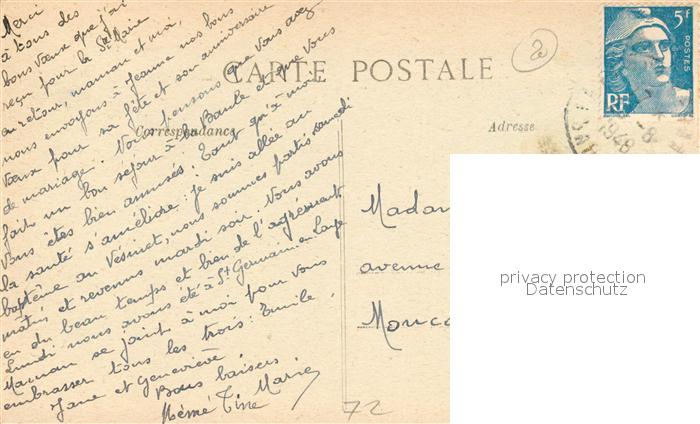 Merci
à tous des
bons vœux que j'ai
reçu pour la Ste Marie
au retour, maman et moi,
nous envoyons à Jeanne nos bons
vœux pour sa fête et son anniversaire
de mariage. Nous pensons que vous avez
fait un bon séjour à la Baule et que vous
vous êtes bien amusés. Tant qu'à moi
la santé s'améliore : je suis allée au
baptême au Vésinet, nous sommes partis samedi
matin et revenus mardi soir. Nous avons
eu du beau temps et bien de l'agrément
Lundi nous avons été à St Germain en Laye
Maman se joint à moi pour vous
embrasser tous les trois : Emile,
Jane et Geneviève
Bons baisers
Mémé Tine Marie
CARTE POSTALE
Correspondance
Adresse
2
5F
POSTES
RF
1948
Madam
avenue
Monco
72
privacy protection
Datenschutz